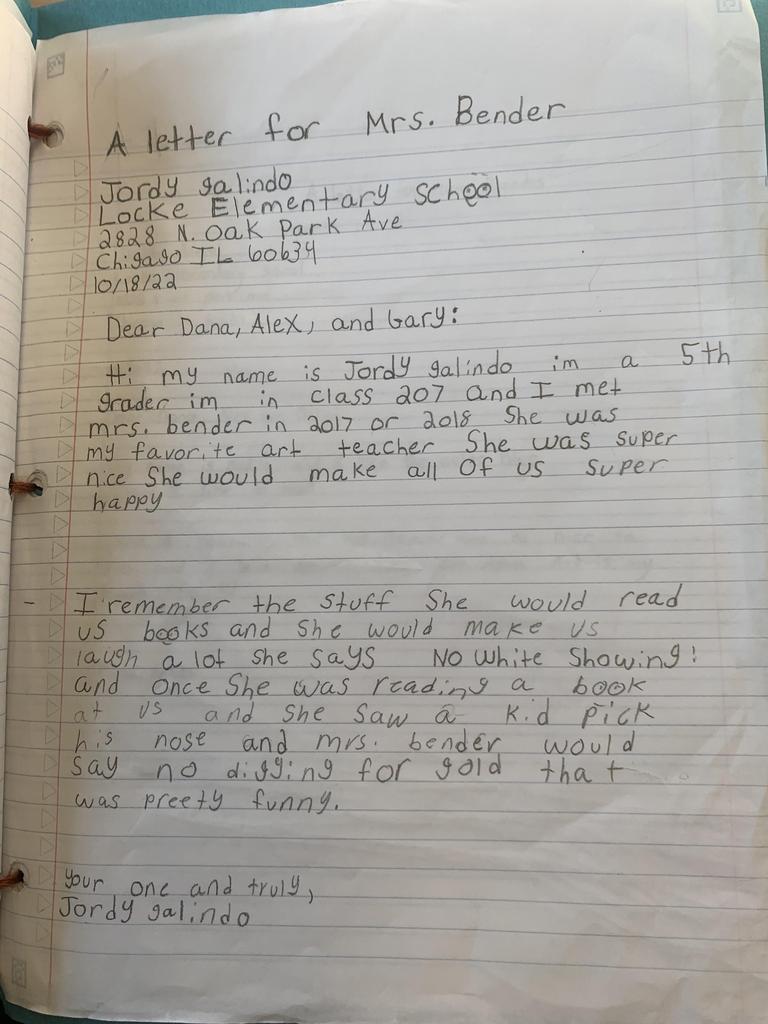 A letter for Mrs. Bender
Jordy galindo
Locke Elementary School
2828 N. Oak Park Ave
Chigago IL 60634
10/18/22
Dear Dana, Alex, and Gary:
Hi my name is Jordy galindo im a 5th
grader im in class 207 and I met
mrs. bender in 2017 or 2018 She was
my favorite art teacher She was super
nice She would make all Of us super
happy
- I remember the stuff She would read
us books and she would make us
laugh a lot she says No white Showing!
and once She was reading a book
at us and she saw a kid pick
his nose and mrs. bender would
say no digging for gold that
was preety funny.
your one and truly,
Jordy galindo